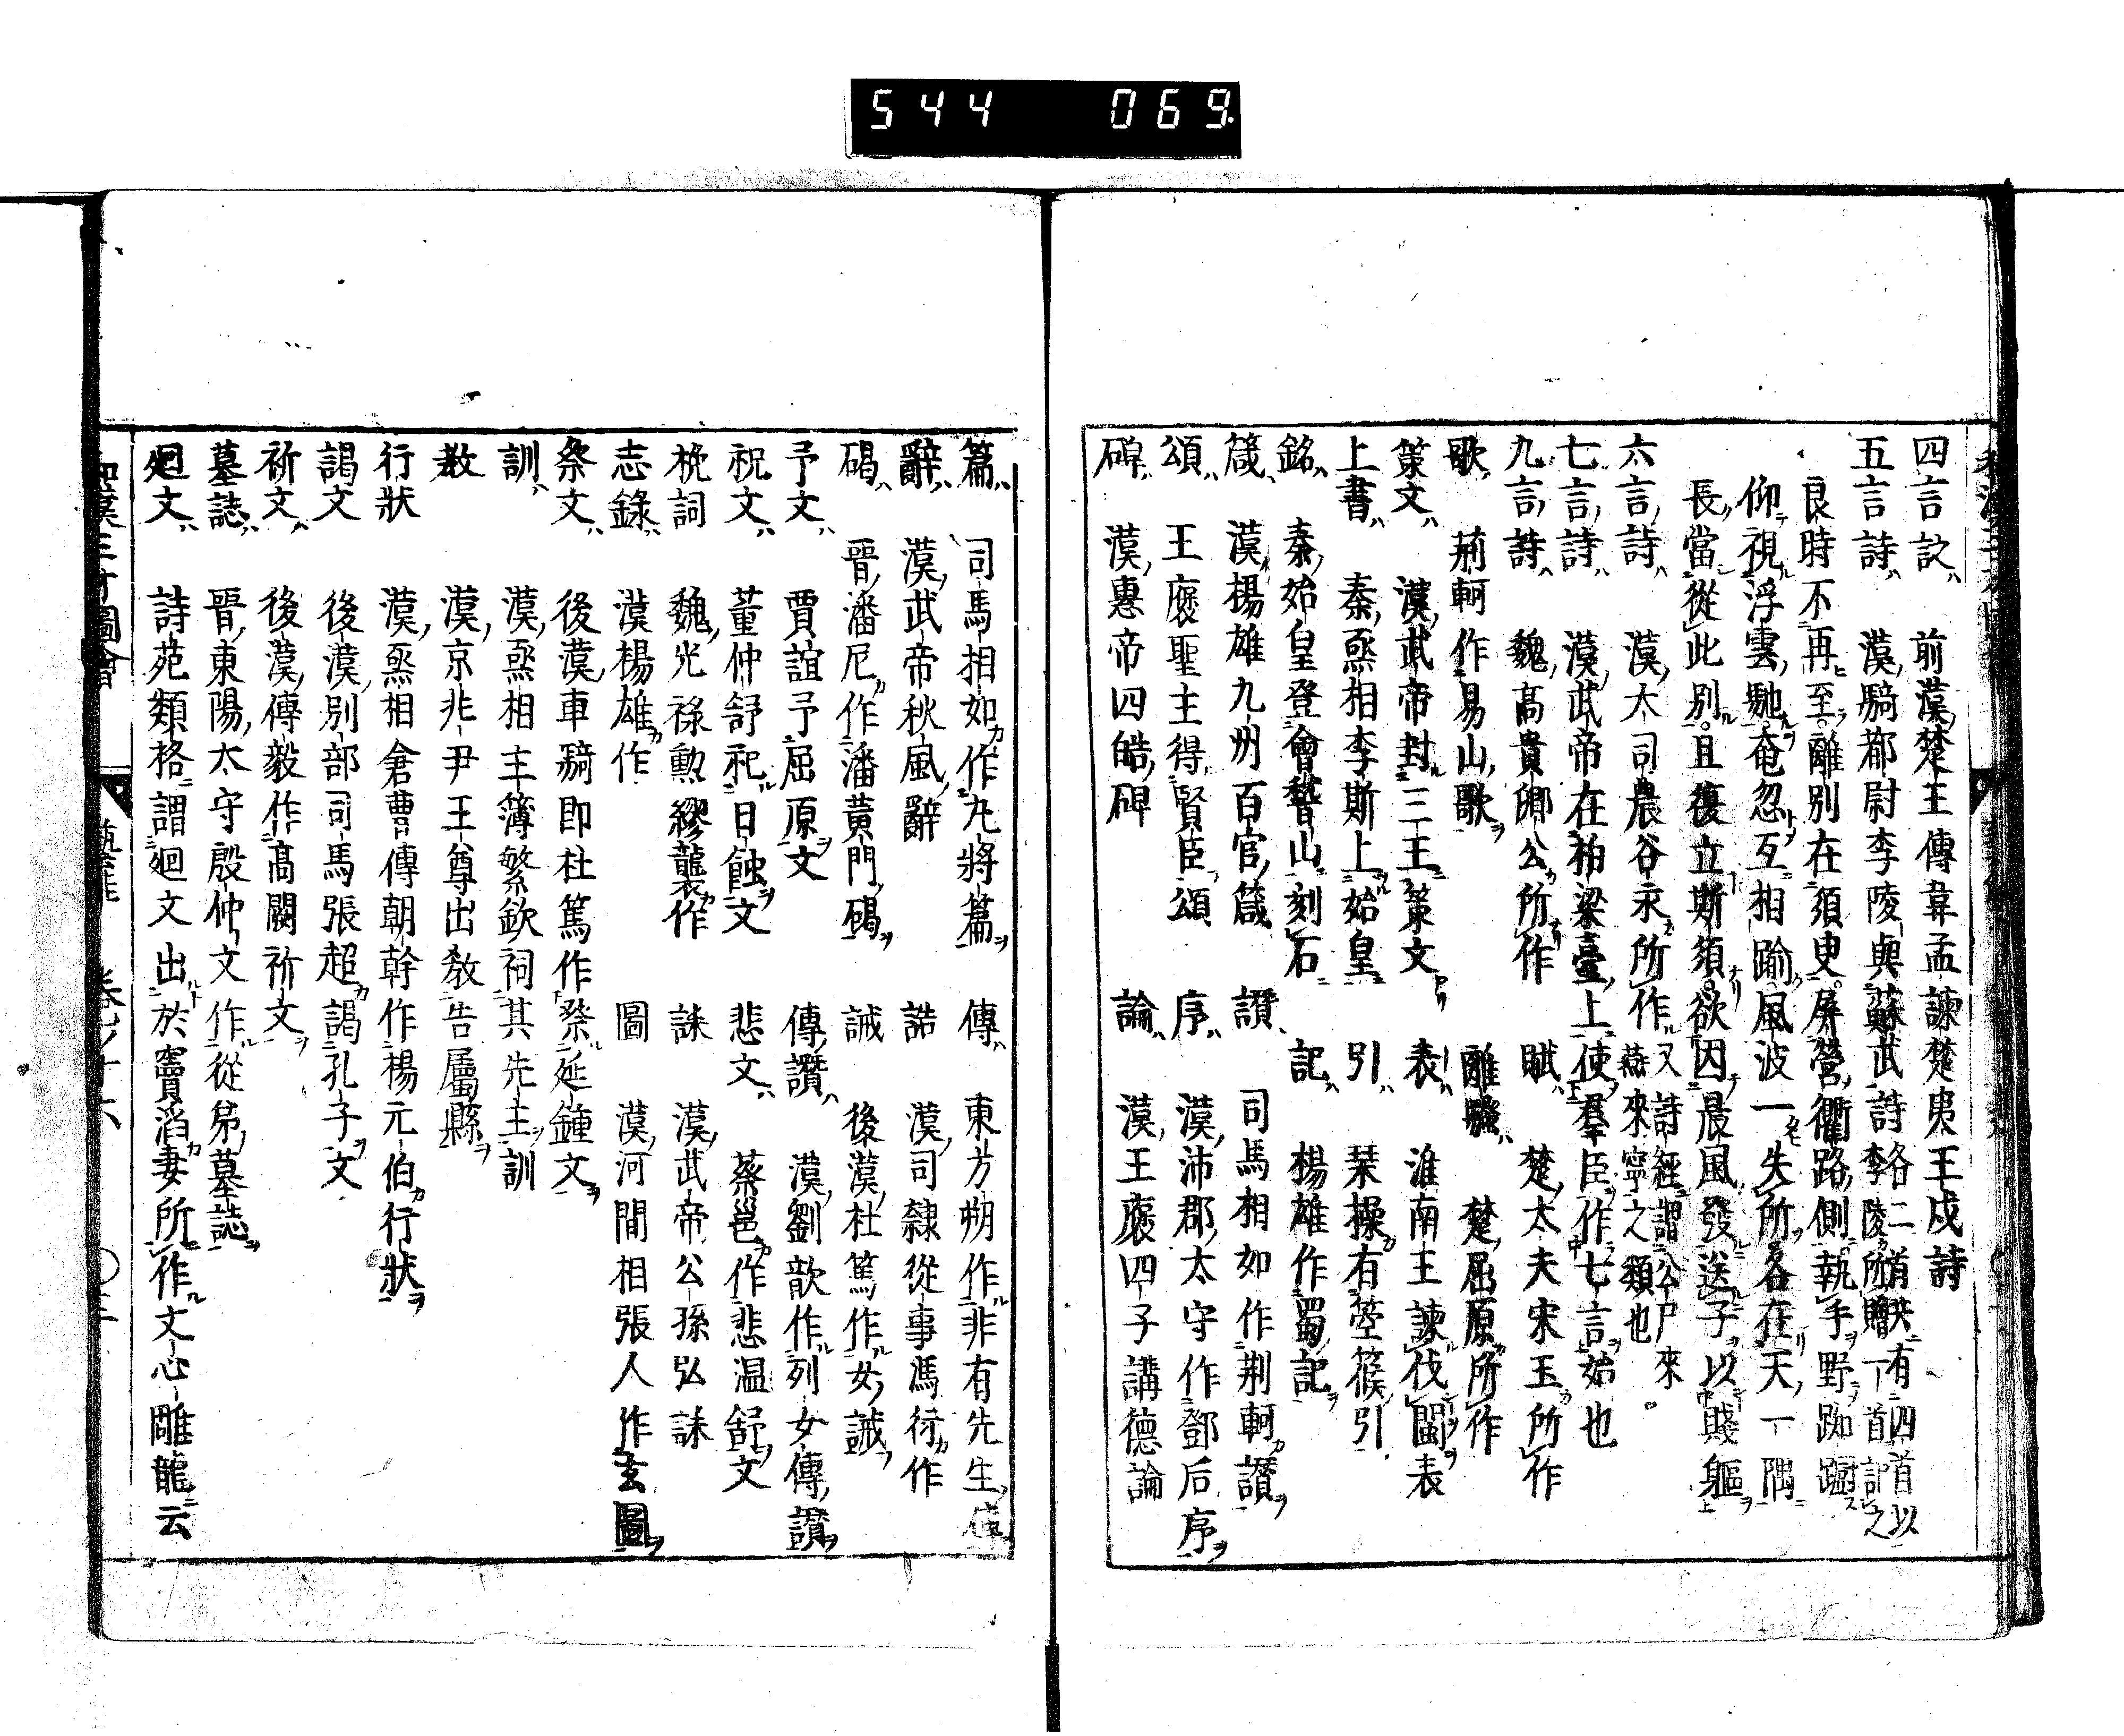 544 069.
四言詩ハ 前漢ノ楚王傳韋孟諫楚夷王戊詩
五言詩ハ 漢ノ騎都尉李陵與蘇武詩 各二首共ニ有四首以李陵カ所贈一首記之
良時不再至離別在須臾屏營衢路側執手野踟蹰
仰視浮雲馳奄忽互相踰風波一失所各在天一隅
長當從此別且復立斯須欲因晨風發送子以賤軀
六言ノ詩 漢ノ大司農谷永所作 又詩經謂公尸來燕來寧之類也
七言ノ詩ハ 漢ノ武帝在柏梁臺上使羣臣作七言始也
九言ノ詩ハ 魏ノ高貴卿公所作 賦ハ 楚ノ太夫宋玉所作
歌 荊軻作易山歌 離騷ハ 楚ノ屈原所作
策文ハ 漢ノ武帝封三王策文 表ハ 淮南王諫伐閩表
上書ハ 秦ノ烝相李斯上始皇 引ハ 琴操有箜篌引
銘ハ 秦ノ始皇登會稽山刻石 記ハ 楊雄作蜀記
箴ハ 漢楊雄九州百官箴 讚ハ 司馬相如作荊軻讚
頌ハ 王褒聖主得賢臣頌 序ハ 漢ノ沛郡太守作鄧后序
碑ハ 漢ノ惠帝四皓碑 論ハ 漢ノ王褒四子講德論
篇ハ 司馬相如作凡將篇 傳ハ 東方朔作非有先生傳
辭ハ 漢ノ武帝秋風辭 誥 漢ノ司隸從事馮衍作
碣ハ 晉ノ潘尼作潘黃門碣 誡 後漢ノ杜篤作女誡
予文ハ 賈誼予屈原文 傳讚ハ 漢ノ劉歆作列女傳讚
祝文ハ 董仲舒祀日蝕文 悲文ハ 蔡邕作悲温舒文
桄詞 魏ノ光祿勲繆襲作 誄 漢ノ武帝公孫弘誄
志錄ハ 漢楊雄作 圖 漢ノ河間相張人作玄圖
祭文ハ 後漢ノ車騎即杜篤作祭延鍾文
訓ハ 漢ノ烝相主簿繁欽祠其先主訓
教 漢ノ京兆尹王尊出教告屬縣
行狀 漢ノ烝相倉曹傳朝幹作楊元伯行狀
謁文 後漢ノ別部司馬張超謁孔子文
祈文ハ 後漢ノ傳毅作高闕祈文
墓誌ハ 晉ノ東陽太守殷仲文作從弟墓誌
廻文ハ 詩苑類格謂廻文出於竇滔妻所作文心雕龍云
和漢三才圖會 藝才 卷ノ十六